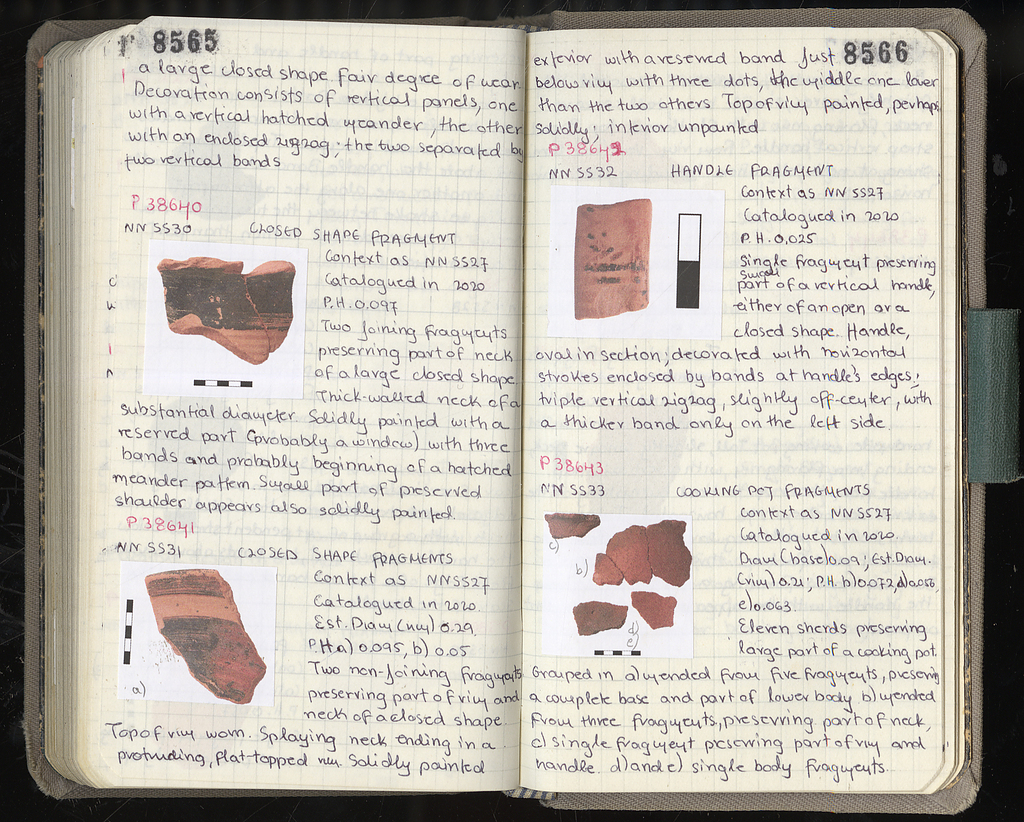 8565
a large closed shape. Fair degree of wear.
Decoration consists of vertical panels, one
with a vertical hatched meander, the other
with an enclosed zigzag; the two separated by
two vertical bands
P 38640
NN SS30 CLOSED SHAPE FRAGMENT
Context as NN SS27
Catalogued in 2020
P.H. 0.097
Two joining fragments
preserving part of neck
of a large closed shape.
Thick-walled neck of a
substantial diameter. Solidly painted with a
reserved part (probably a window) with three
bands and probably beginning of a hatched
meander pattern. Small part of preserved
shoulder appears also solidly painted.
P 38641
NN SS31 CLOSED SHAPE FRAGMENTS
Context as NN SS27
Catalogued in 2020.
Est. Diam (rim) 0.29,
P.H a) 0.095, b) 0.05
Two non-joining fragments
preserving part of rim and
neck of a closed shape.
a)
Top of rim worn. Splaying neck ending in a
protruding, flat-topped rim. Solidly painted
8566
exterior with a reserved band just
below rim with three dots, the middle one lower
than the two others Top of rim painted, perhaps
solidly; interior unpainted
P 38642
NN SS32 HANDLE FRAGMENT
Context as NN SS27
Catalogued in 2020
P.H. 0.025
Single fragment preserving
small
part of a vertical handle,
either of an open or a
closed shape. Handle,
oval in section; decorated with horizontal
strokes enclosed by bands at handle's edges;
triple vertical zigzag, slightly off-center, with
a thicker band only on the left side.
P 38643
NN SS33 COOKING POT FRAGMENTS
Context as NN SS27
Catalogued in 2020.
Diam (base) 0.09; Est. Diam.
(rim) 0.21; P.H. b) 0.072, d)
e) 0.063.
Eleven sherds preserving
large part of a cooking pot.
c)
b)
d)
e)
Grouped in a) mended from five fragments, preserving
a complete base and part of lower body b) mended
from three fragments, preserving part of neck,
c) single fragment preserving part of rim and
handle. d) and e) single body fragments.